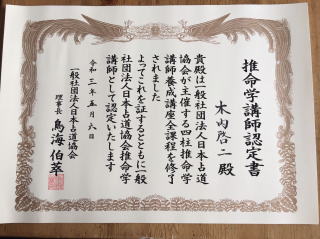 推命学講師認定書
木内啓二殿
貴殿は一般社団法人日本占道
協会が主催する四柱推命学
講師養成講座全課程を修了
されました
よってこれを証するとともに一般
社団法人日本占道協会推命学
講師として認定いたします
令和三年五月六日
一般社団法人日本占道協会
理事長 鳥海伯萃